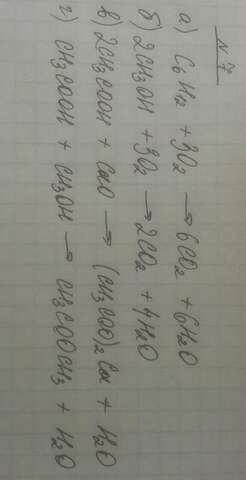 №7
а) C6H12 + 9O2 → 6CO2 + 6H2O
б) 2CH3OH + 3O2 → 2CO2 + 4H2O
в) 2CH3COOH + CaO → (CH3COO)2Ca + H2O
г) CH3COOH + CH3OH → CH3COOCH3 + H2O